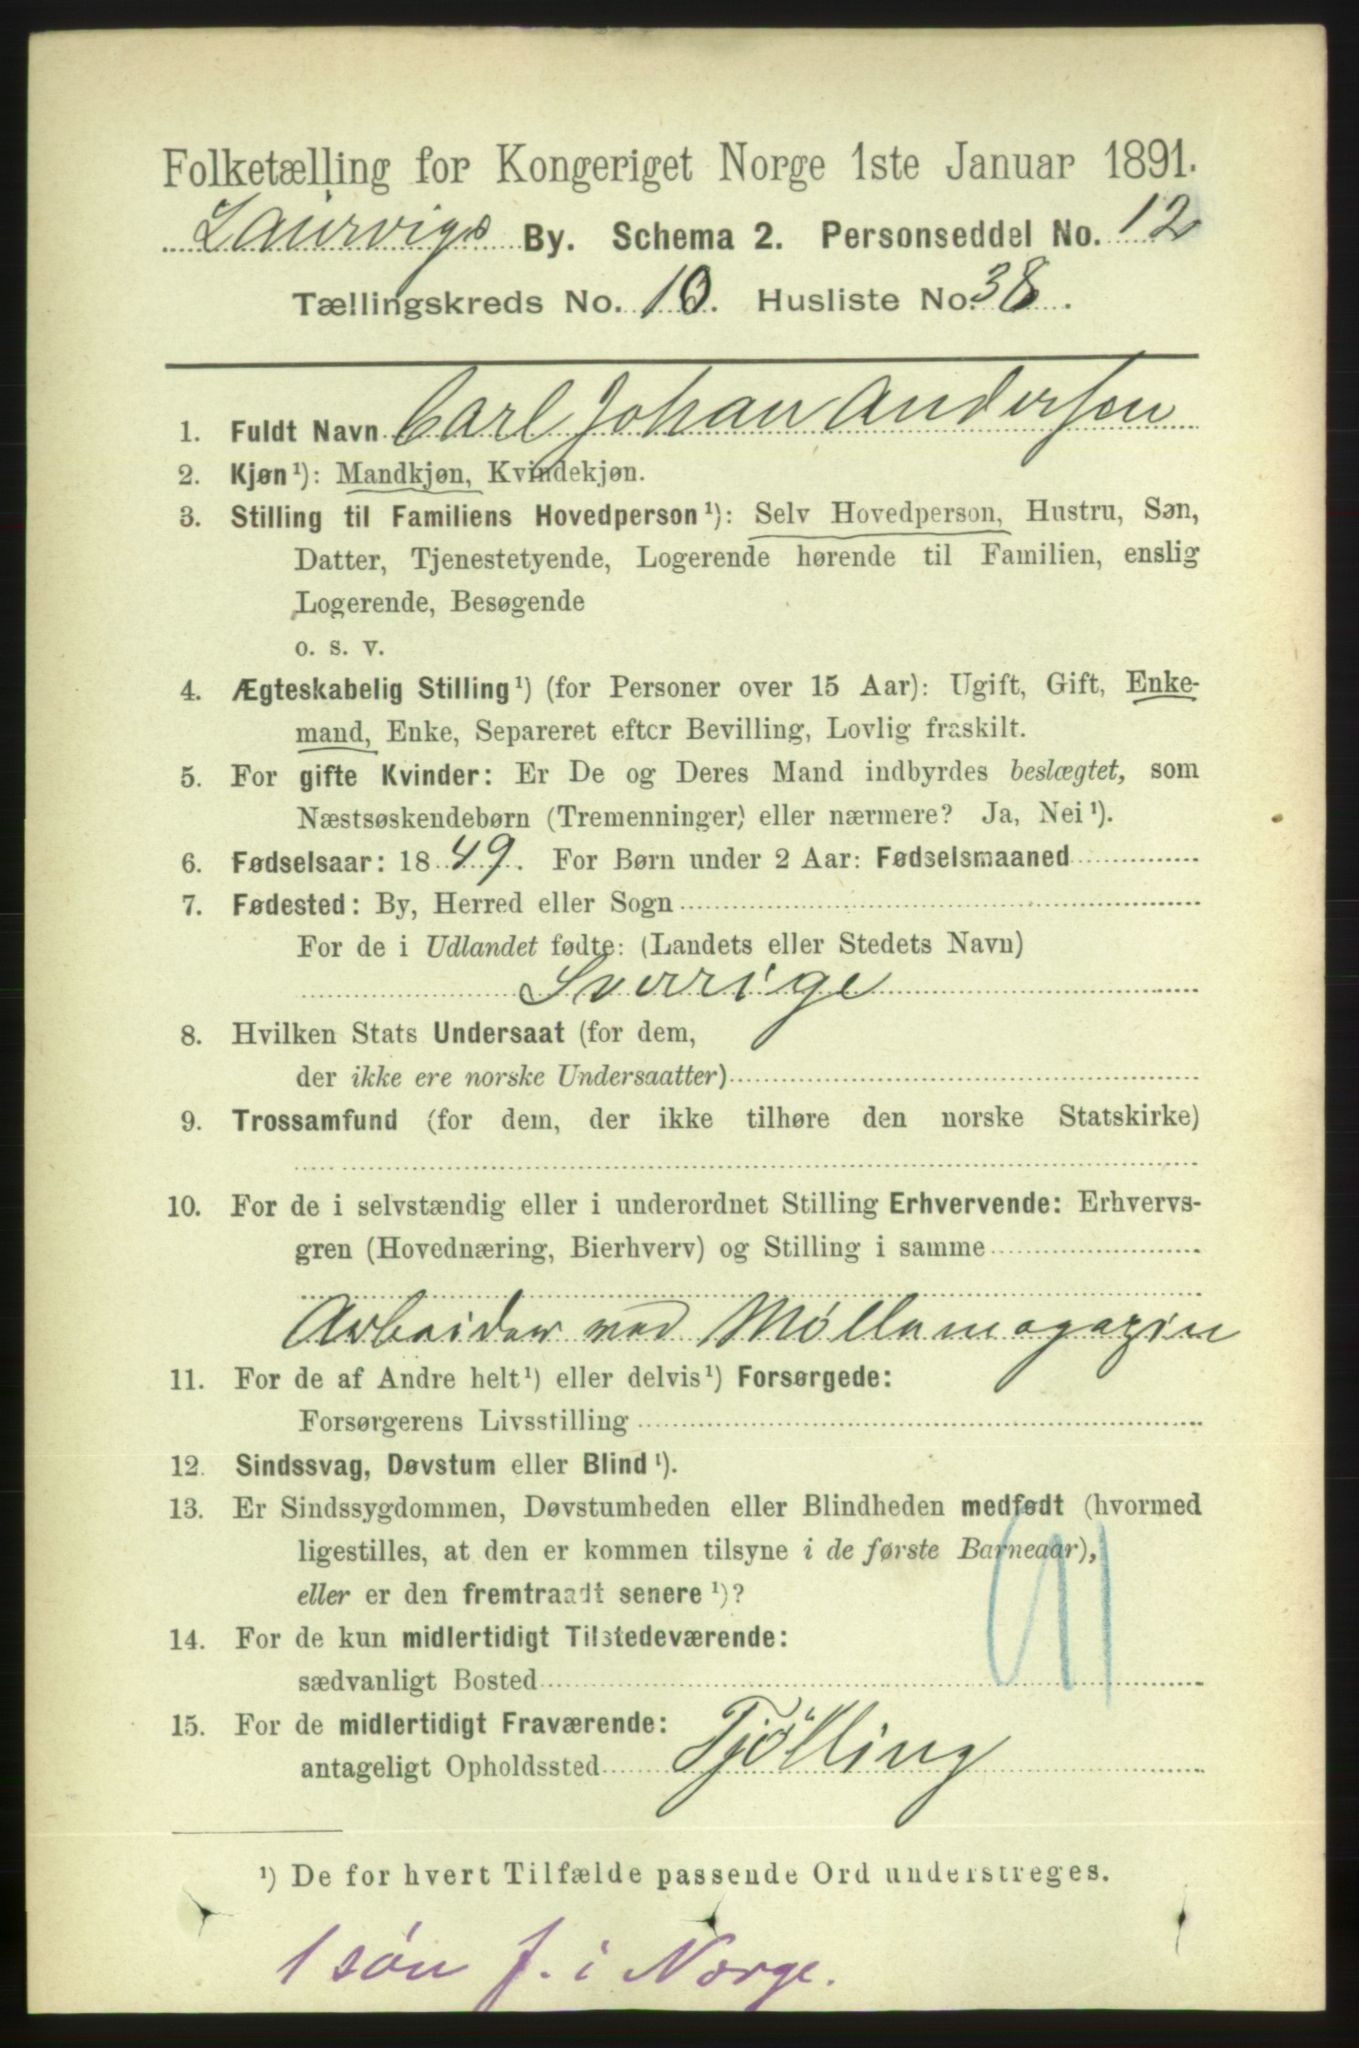 Folketælling for Kongeriget Norge 1ste Januar 1891.
Laurvigs By. Schema 2. Personseddel No. 12
Tællingskreds No. 10. Husliste No. 38.
1. Fuldt Navn Carl Johan Andersen
2. Kjøn¹): Mandkjøn, Kvindekjøn.
3. Stilling til Familiens Hovedperson¹): Selv Hovedperson, Hustru, Søn,
Datter, Tjenestetyende, Logerende hørende til Familien, enslig
Logerende, Besøgende
o. s. v.
4. Ægteskabelig Stilling¹) (for Personer over 15 Aar): Ugift, Gift, Enke-
mand, Enke, Separeret efter Bevilling, Lovlig fraskilt.
5. For gifte Kvinder: Er De og Deres Mand indbyrdes beslægtet, som
Næstsøskendebørn (Tremenninger) eller nærmere? Ja, Nei¹).
6. Fødselsaar: 1849. For Børn under 2 Aar: Fødselsmaaned
7. Fødested: By, Herred eller Sogn
For de i Udlandet fødte: (Landets eller Stedets Navn)
Sverrige
8. Hvilken Stats Undersaat (for dem,
der ikke ere norske Undersaatter)
9. Trossamfund (for dem, der ikke tilhøre den norske Statskirke)
10. For de i selvstændig eller i underordnet Stilling Erhvervende: Erhvervs-
gren (Hovednæring, Bierhverv) og Stilling i samme
Arbeider ved Møllemagazin
11. For de af Andre helt¹) eller delvis¹) Forsørgede:
Forsørgerens Livsstilling
12. Sindssvag, Døvstum eller Blind¹).
13. Er Sindssygdommen, Døvstumheden eller Blindheden medfødt (hvormed
ligestilles, at den er kommen tilsyne i de første Barneaar),
eller er den fremtraadt senere¹)?
14. For de kun midlertidigt Tilstedeværende:
sædvanligt Bosted
91
15. For de midlertidigt Fraværende:
antageligt Opholdssted Tjölling
¹) De for hvert Tilfælde passende Ord understreges.
1 søn f. i Norge.